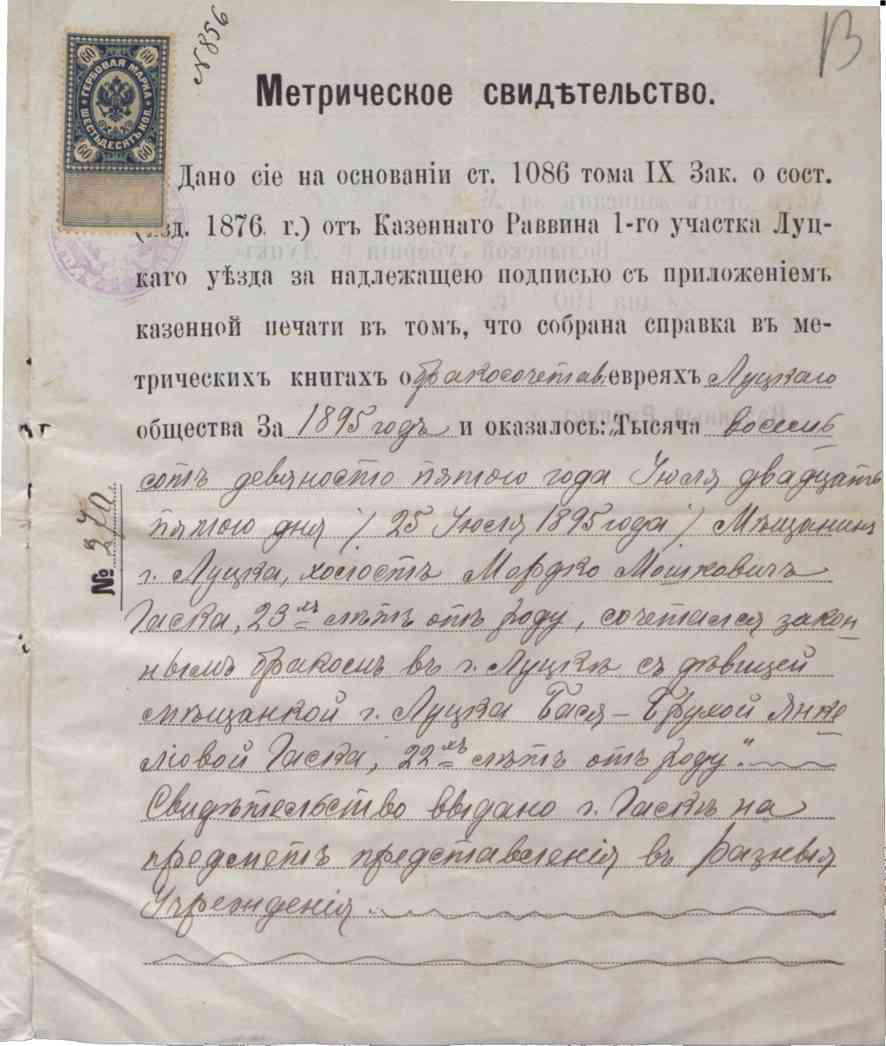 N 856
В
60 60
ГЕРБОВАЯ МАРКА
ШЕСТЬДЕСЯТЪ КОП.
60 60
Метрическое свидѣтельство.
Дано сіе на основаніи ст. 1086 тома IX Зак. о сост.
(изд. 1876 г.) отъ Казеннаго Раввина 1-го участка Луц-
каго уѣзда за надлежащею подписью съ приложеніемъ
казенной печати въ томъ, что собрана справка въ ме-
трическихъ книгахъ о бракосочетав. евреяхъ Луцкаго
общества За 1895 годъ и оказалось: „Тысяча восемь
сотъ девяносто пятого года Іюля двадцать
пятого дня / 25 Іюля 1895 года / Мѣщанинъ
г. Луцка, холостъ Мордко Мошковичъ
Гаска, 23хъ лѣтъ отъ роду, сочетался закон
нымъ бракомъ въ г. Луцкѣ съ дѣвицей
мѣщанкой г. Луцка Бася-Брухой Янке
левой Гаска, 22хъ лѣтъ отъ роду".
Свидѣтельство выдано г. Гаскѣ на
предметъ представленія въ разныя
Учрежденія.
№ 270